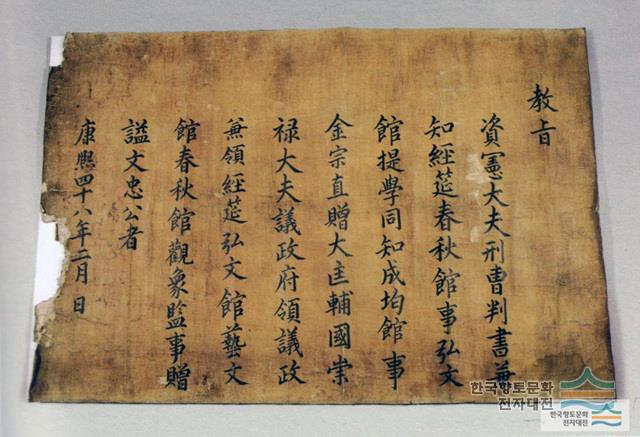 敎旨
資憲大夫刑曹判書兼
知經筵春秋館事弘文
館提學同知成均館事
金宗直贈大匡輔國崇
祿大夫議政府領議政
兼領經筵弘文館藝文
館春秋館觀象監事贈
謚文忠公者
康熙四十八年二月 日
한국향토문화
전자대전
한국향토문화
전자대전